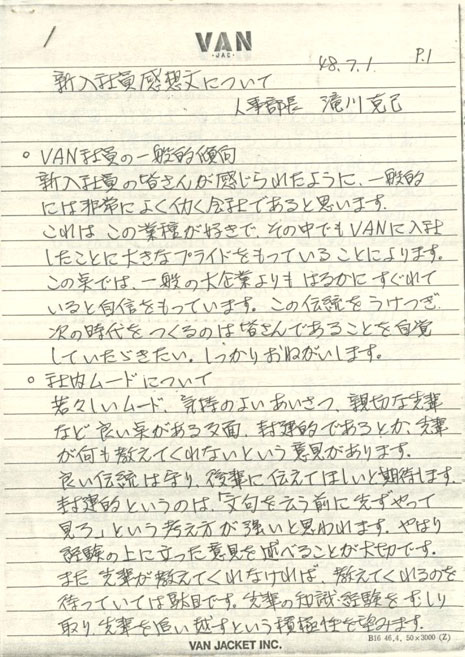 1
VAN
・JAC・
48.7.1. P.1
新入社員感想文について
人事部長 滝川克己
○ VAN社員の一般的傾向
新入社員の皆さんが感じられたように、一般的
には非常によく仂く会社であると思います。
これは この業種が好きで、その中でもVANに入社
したことに大きなプライドをもっていることによります。
この点では、一般の大企業よりも はるかに すぐれて
いると自信をもっています。この伝統をうけつぎ
次の時代をつくるのは皆さんであることを自覚
していただきたい。しっかりおねがいします。
○ 社内ムードについて
若々しいムード、気持のよいあいさつ、親切な先輩
など 良い点がある反面、封建的であるとか、先輩
が何も教えてくれないという意見があります。
良い伝統は守り、後輩に伝えてほしいと期待します。
封建的というのは、「文句を云う前に先ずやって
見ろ」という考え方が強いと思われます。やはり
経験の上に立った意見を述べることが大切です。
また 先輩が教えてくれなければ、教えてくれるのを
待っていては駄目です。先輩の知識・経験をむしり
取り、先輩を追い越すという積極性を望みます。
B16 46,4, 50×3000 (Z)
VAN JACKET INC.